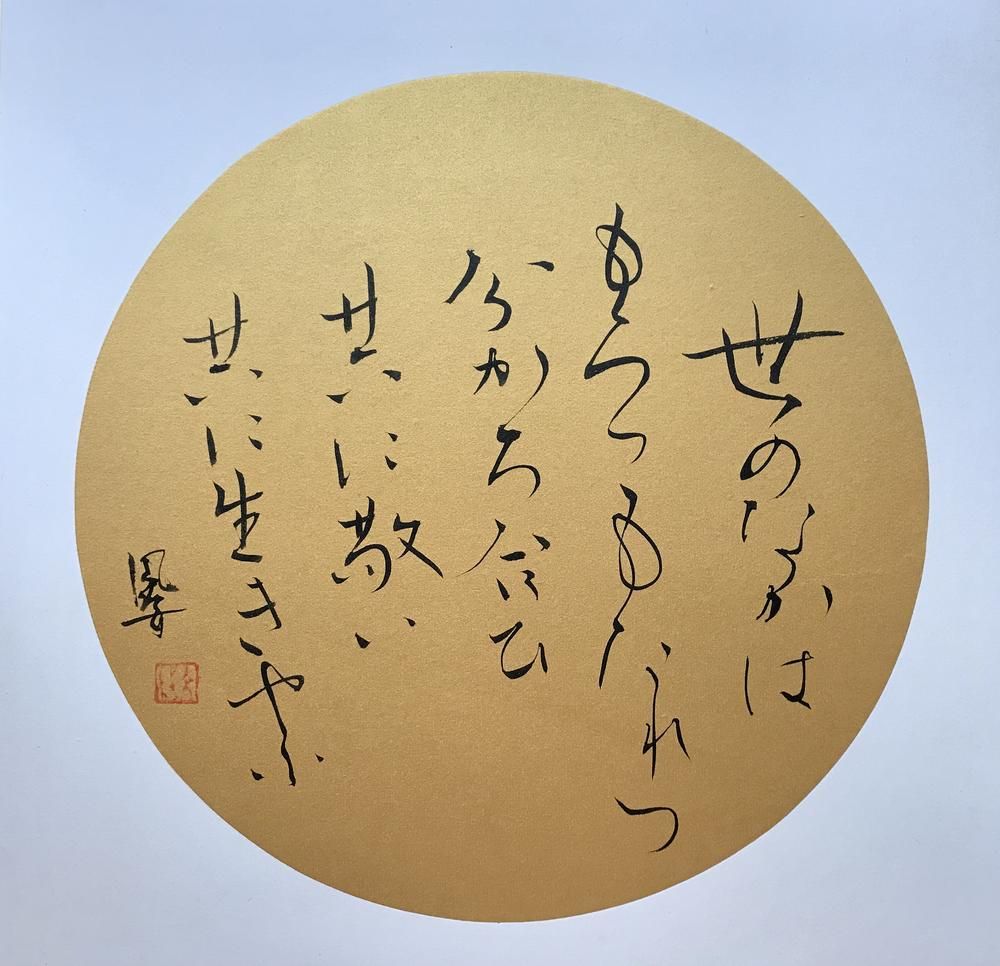 世のなかは
もちつもたれつ
分かち合ひ
共に敬い
共に生きやふ